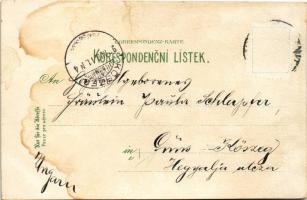 CORRESPONDENZ-KARTE.
KORESPONDENČNÍ LÍSTEK.
An
Fräulein Paula Schlapfer,
in Güns Kőszeg
Hegyalja utcza
Ungarn
Nur für die Adresse
Pouze pro adresu